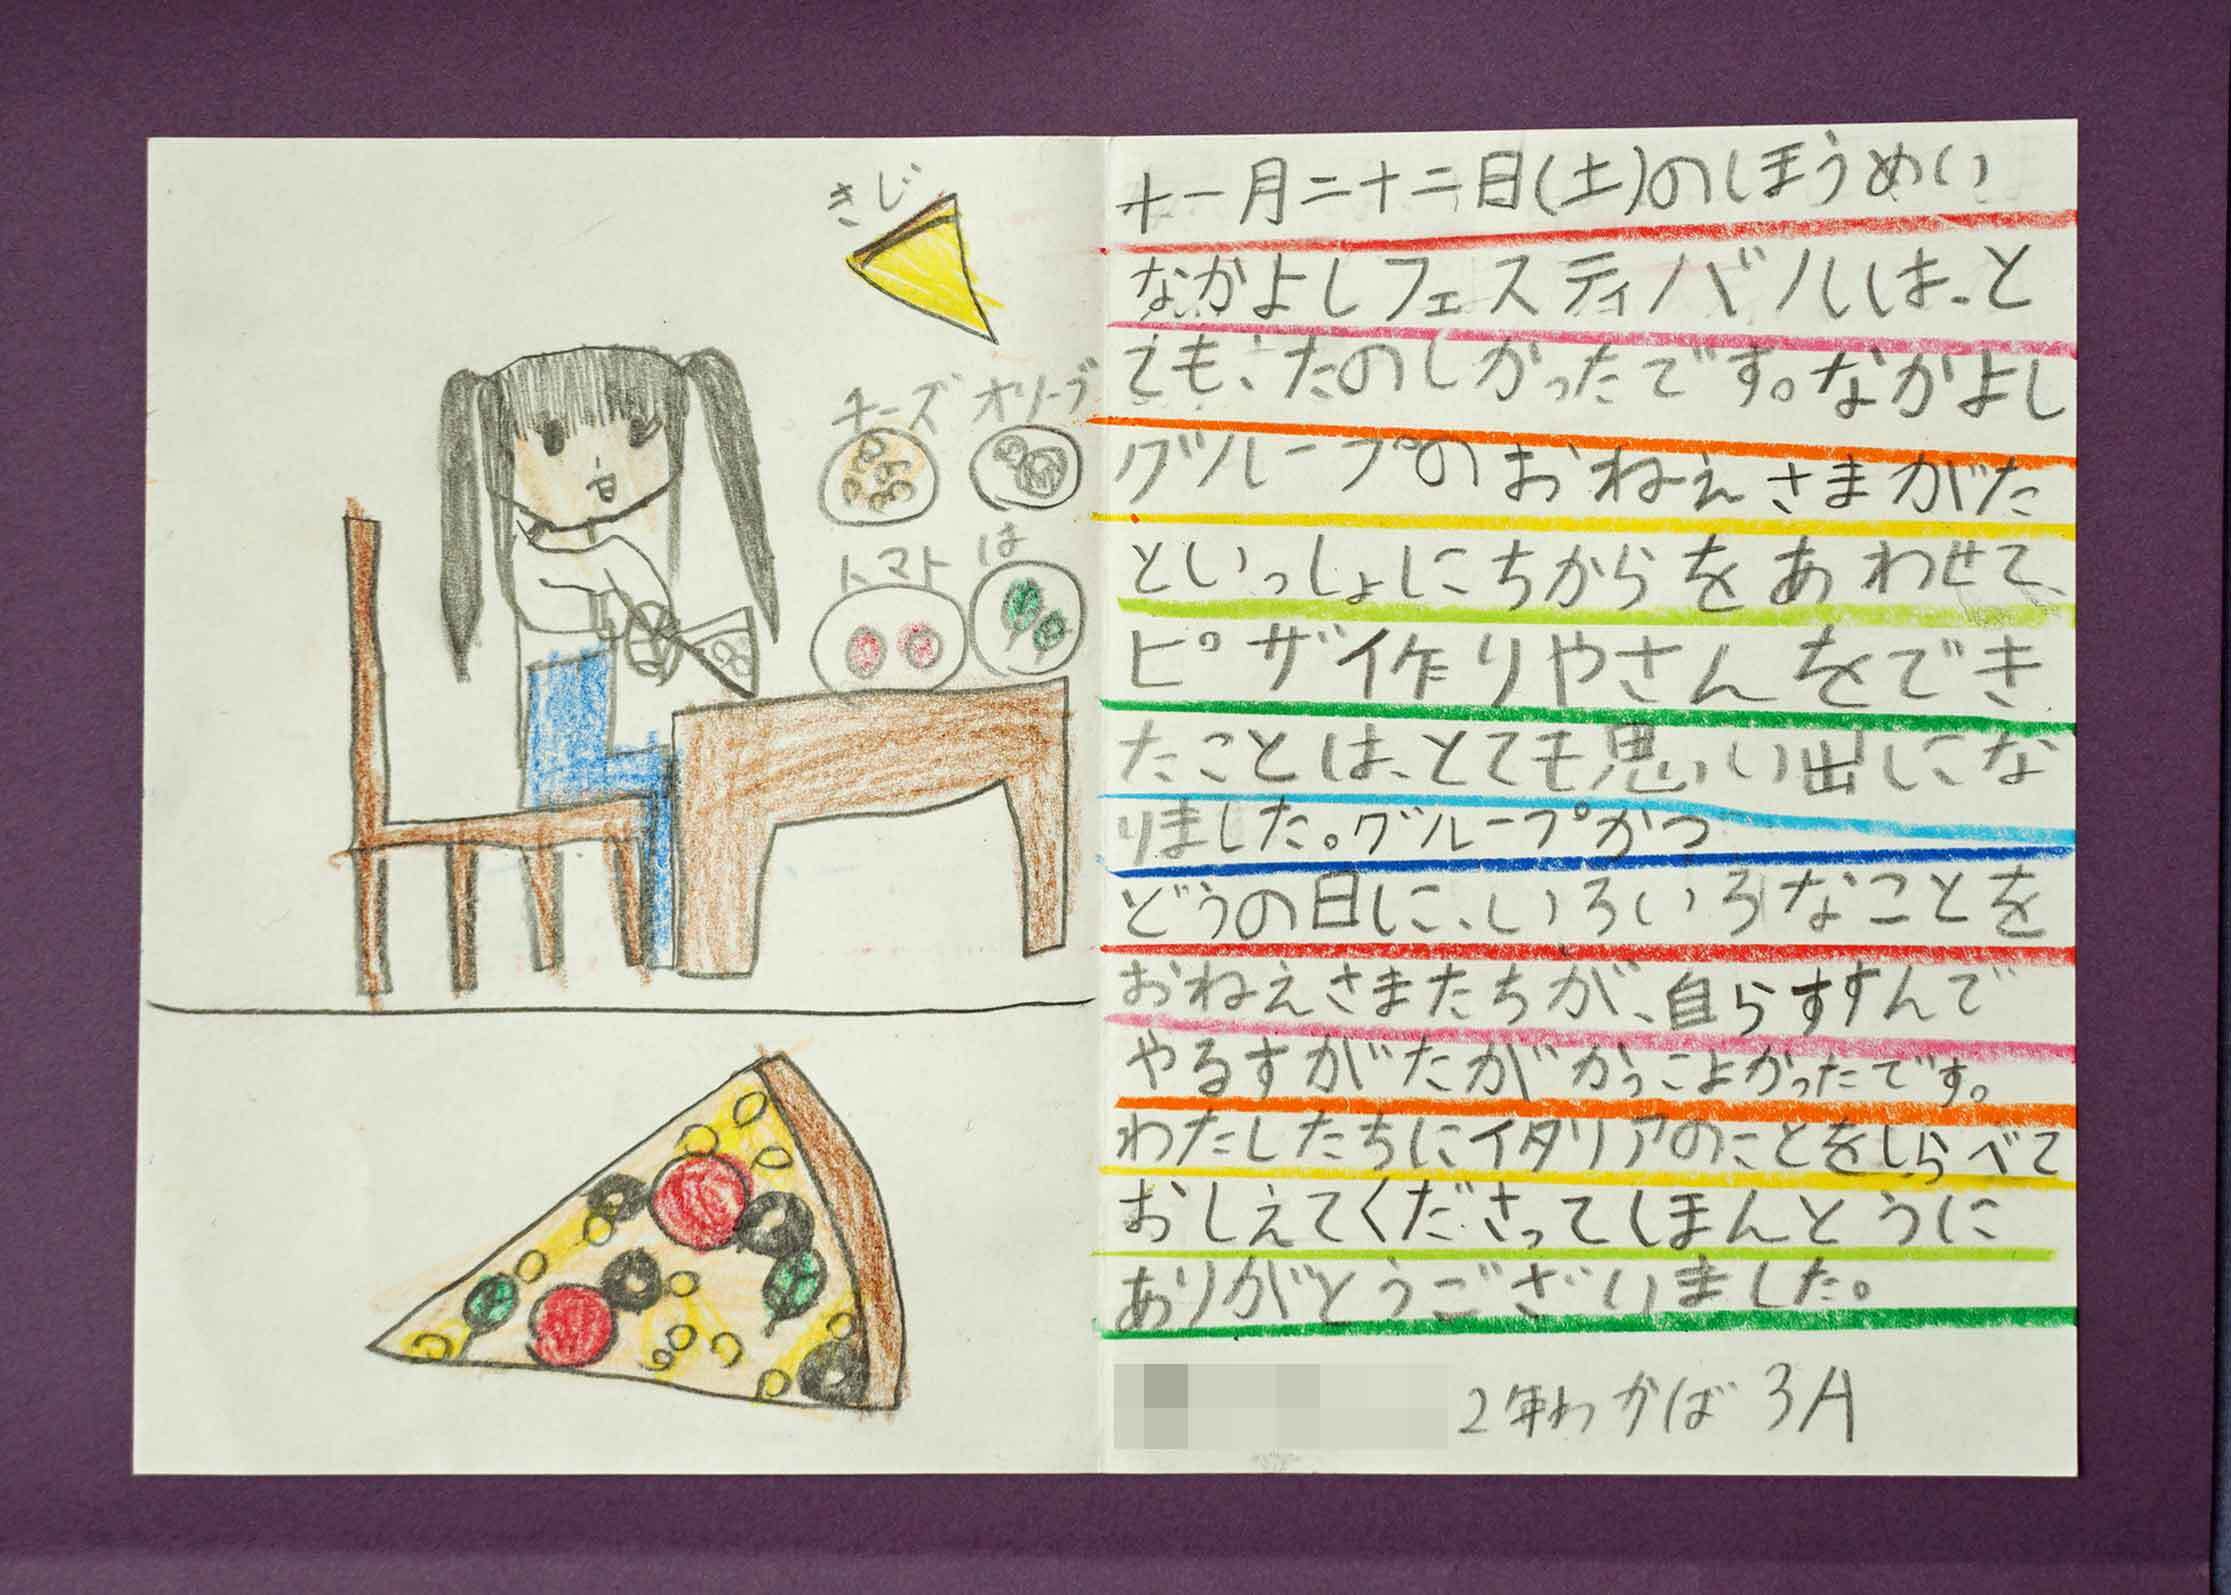 きじ
チーズ オリーブ
トマト は
十一月二十二日(土)のほうめい
なかよしフェスティバルは、と
ても、たのしかったです。なかよし
グループのおねえさまがた
といっしょにちからをあわせて、
ピザ作りやさんをでき
たことは、とても思い出にな
りました。グループかつ
どうの日に、いろいろなことを
おねえさまたちが、自らすすんで
やるすがたがかっこよかったです。
わたしたちにイタリアのことをしらべて
おしえてくださってほんとうに
ありがとうございました。
2年わかば 3A